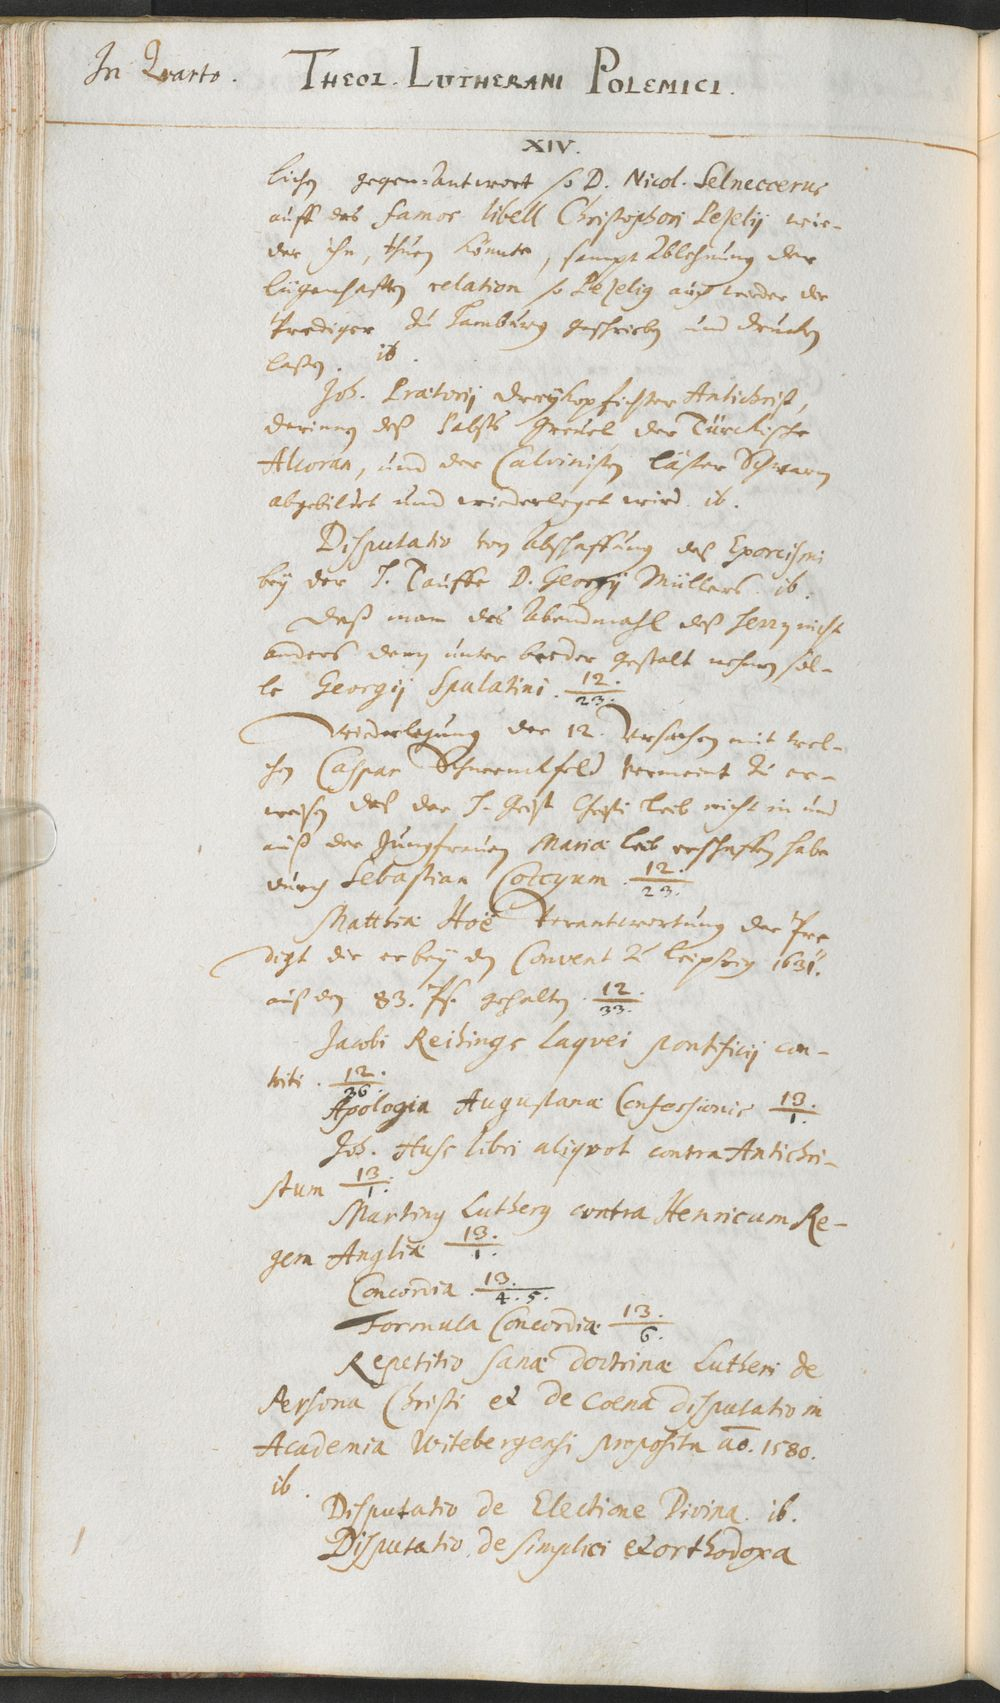 In Qvarto. THEOL. LUTHERANI POLEMICI.
XIV.
lichen gegen-Antwort so D. Nicol. Selneccerus
auff das famos libell Christophori Pezelij wie-
der ihn, thuen könnte, sampt Ablehnung der
lügenhafften relation so Pezelig auch wieder die
Prediger zu Hamburg geschrieben und drucken
laßen. ib.
Joh. Prætorij dreyköpfichter Antichrist,
darinnen deß Pabsts Greuel, der Türckische
Alcoran, und der Calvinisten läster Schwarm
abgebildet und wiederleget wird. ib.
Disputatio von Abschaffung deß Exorcismi
bey der H. Tauffe D. Georgij Müllers. ib.
Daß man das Abendmahl deß Herrn nicht
anders denn unter beeder gestalt nehmen sol-
le Georgij Spalatini. 12./23.
Wiederlegung der 12. Ursachen mit wel-
chen Caspar Schwenckfeld vermeint zu er-
weisen daß der H. Geist Christi leib nicht in und
auß der Jungfrauen Mariæ leib erschaffen habe
durch Sebastian Coccyum. 12./23.
Matthiæ Hoë Verantwortung der Pre
digt die er bey dem Convent zu Leipzig 1631.
auß dem 83. Ps. gehalten. 12./33.
Jacobi Reihings laqvei pontificij con-
triti. 12./36.
Apologia Augustanæ Confessionis 13./1.
Joh. Huss libri aliqvot contra Antichri-
stum 13./1.
Martinus Lutherus contra Henricum Re-
gem Angliæ 13./1.
Concordia. 13./4.5.
Formula Concordiæ 13./6.
Repetitio sanæ doctrinæ Lutheri de
Persona Christi et de Coena disputatio in
Academia Witebergensi proposita ao. 1580.
ib.
Disputatio de Electione Divina. ib.
Disputatio de simplici et orthodoxa